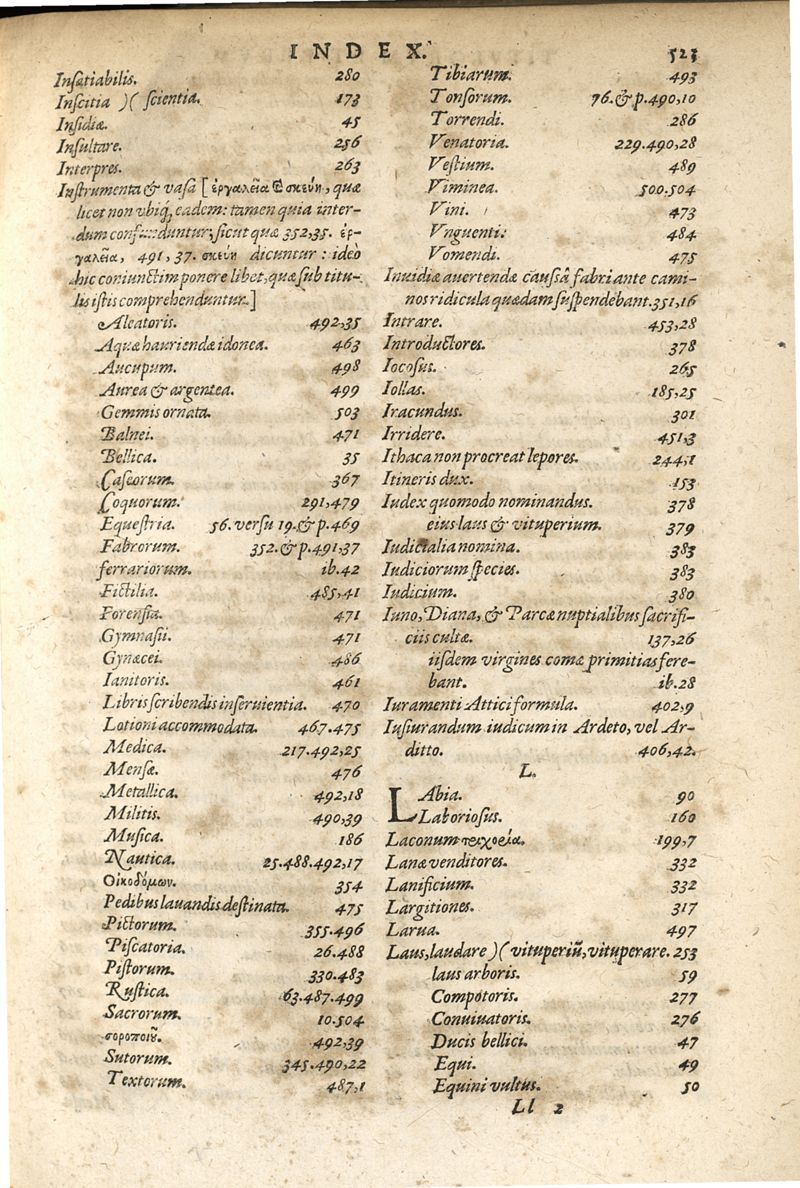 INDEX. 523
Insatiabilis. 280
Inscitia )( scientia. 173
Insidiæ. 45
Insultare. 256
Interpres. 263
Instrumenta & vasa [ἐργαλεῖα & σκεύη, quæ
licet non vbiq; eadem: tamen quia inter-
dum confunduntur, sicut quæ 352,35. ἐρ-
γαλεῖα, 491, 37. σκεύη dicuntur: ideò
hic coniunctim ponere libet, quæ sub titu-
lis istis comprehenduntur.]
Aleatoris. 492,35
Aquæ hauriendæ idonea. 463
Aucupum. 498
Aurea & argentea. 499
Gemmis ornata. 503
Balnei. 471
Bellica. 35
Caseorum. 367
Coquorum. 291,479
Equestria. 56. versu 19. & p. 469
Fabrorum. 352. & p. 491,37
ferrariorum. ib. 42
Fictilia. 485,41
Forensia. 471
Gymnasii. 471
Gynæcei. 486
Ianitoris. 461
Libris scribendis inseruientia. 470
Lotioni accommodata. 467.475
Medica. 217.492,25
Mensæ. 476
Metallica. 492,18
Militis. 490,39
Musica. 186
Nautica. 25.488.492,17
Οἰκοδόμων. 354
Pedibus lauandis destinata. 475
Pictorum. 355.496
Piscatoria. 26.488
Pistorum. 330.483
Rustica. 63.487.499
Sacrorum. 10.504
σοροποιοῦ. 492,39
Sutorum. 345.490,22
Textorum. 487,1
Tibiarum. 493
Tonsorum. 76. & p. 490,10
Torrendi. 286
Venatoria. 229.490,28
Vestium. 489
Viminea. 500.504
Vini. 473
Vnguenti: 484
Vomendi. 475
Inuidiæ auertendæ caussâ fabri ante cami-
nos ridicula quædam suspendebant. 351,16
Intrare. 453,28
Introductores. 378
Iocosus. 265
Iollas. 185,25
Iracundus. 301
Irridere. 451,3
Ithaca non procreat lepores. 244,1
Itineris dux. 153
Iudex quomodo nominandus. 378
eius laus & vituperium. 379
Iudicialia nomina. 383
Iudiciorum species. 383
Iudicium. 380
Iuno, Diana, & Parcæ nuptialibus sacrifi-
ciis cultæ. 137,26
iisdem virgines comæ primitias fere-
bant. ib. 28
Iuramenti Attici formula. 402,9
Iusiurandum iudicum in Ardeto, vel Ar-
ditto. 406,42.
L.
LAbia. 90
Laboriosus. 160
Laconum 199,7
Lanæ venditores. 332
Lanificium. 332
Largitiones. 317
Larua. 497
Laus, laudare )( vituperiū, vituperare. 253
laus arboris. 59
Compotoris. 277
Conuiuatoris. 276
Ducis bellici. 47
Equi. 49
Equini vultus. 50
Ll 2